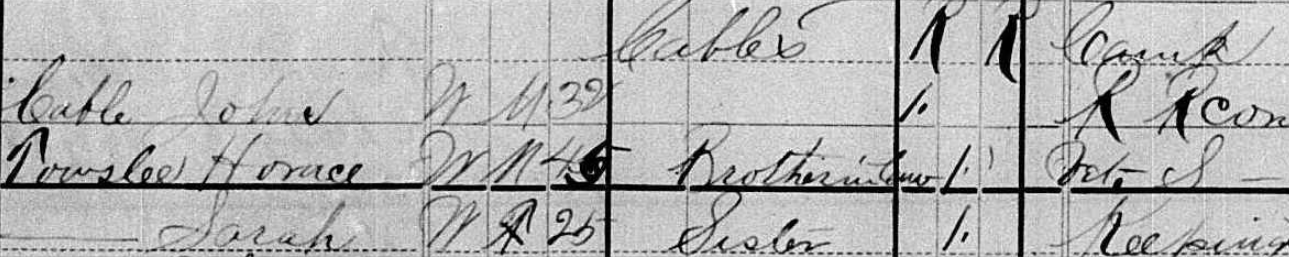 Cables R R Camp
Cable John W M 32 1. R R con
Towslee Horace W M 45 Brotherinlaw 1.
— Sarah W F 25 Sister 1. Keeping